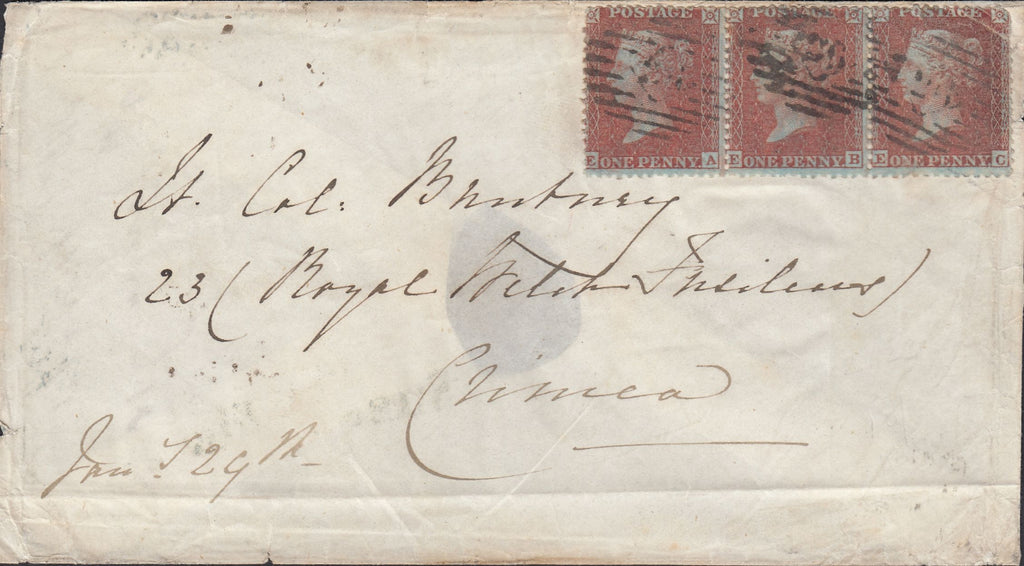 POSTAGE POSTAGE POSTAGE
E ONE PENNY A E ONE PENNY B E ONE PENNY C
Lt. Col. Brubury
23 (Royal Welch Fusileers)
Crimea
Jany 29th